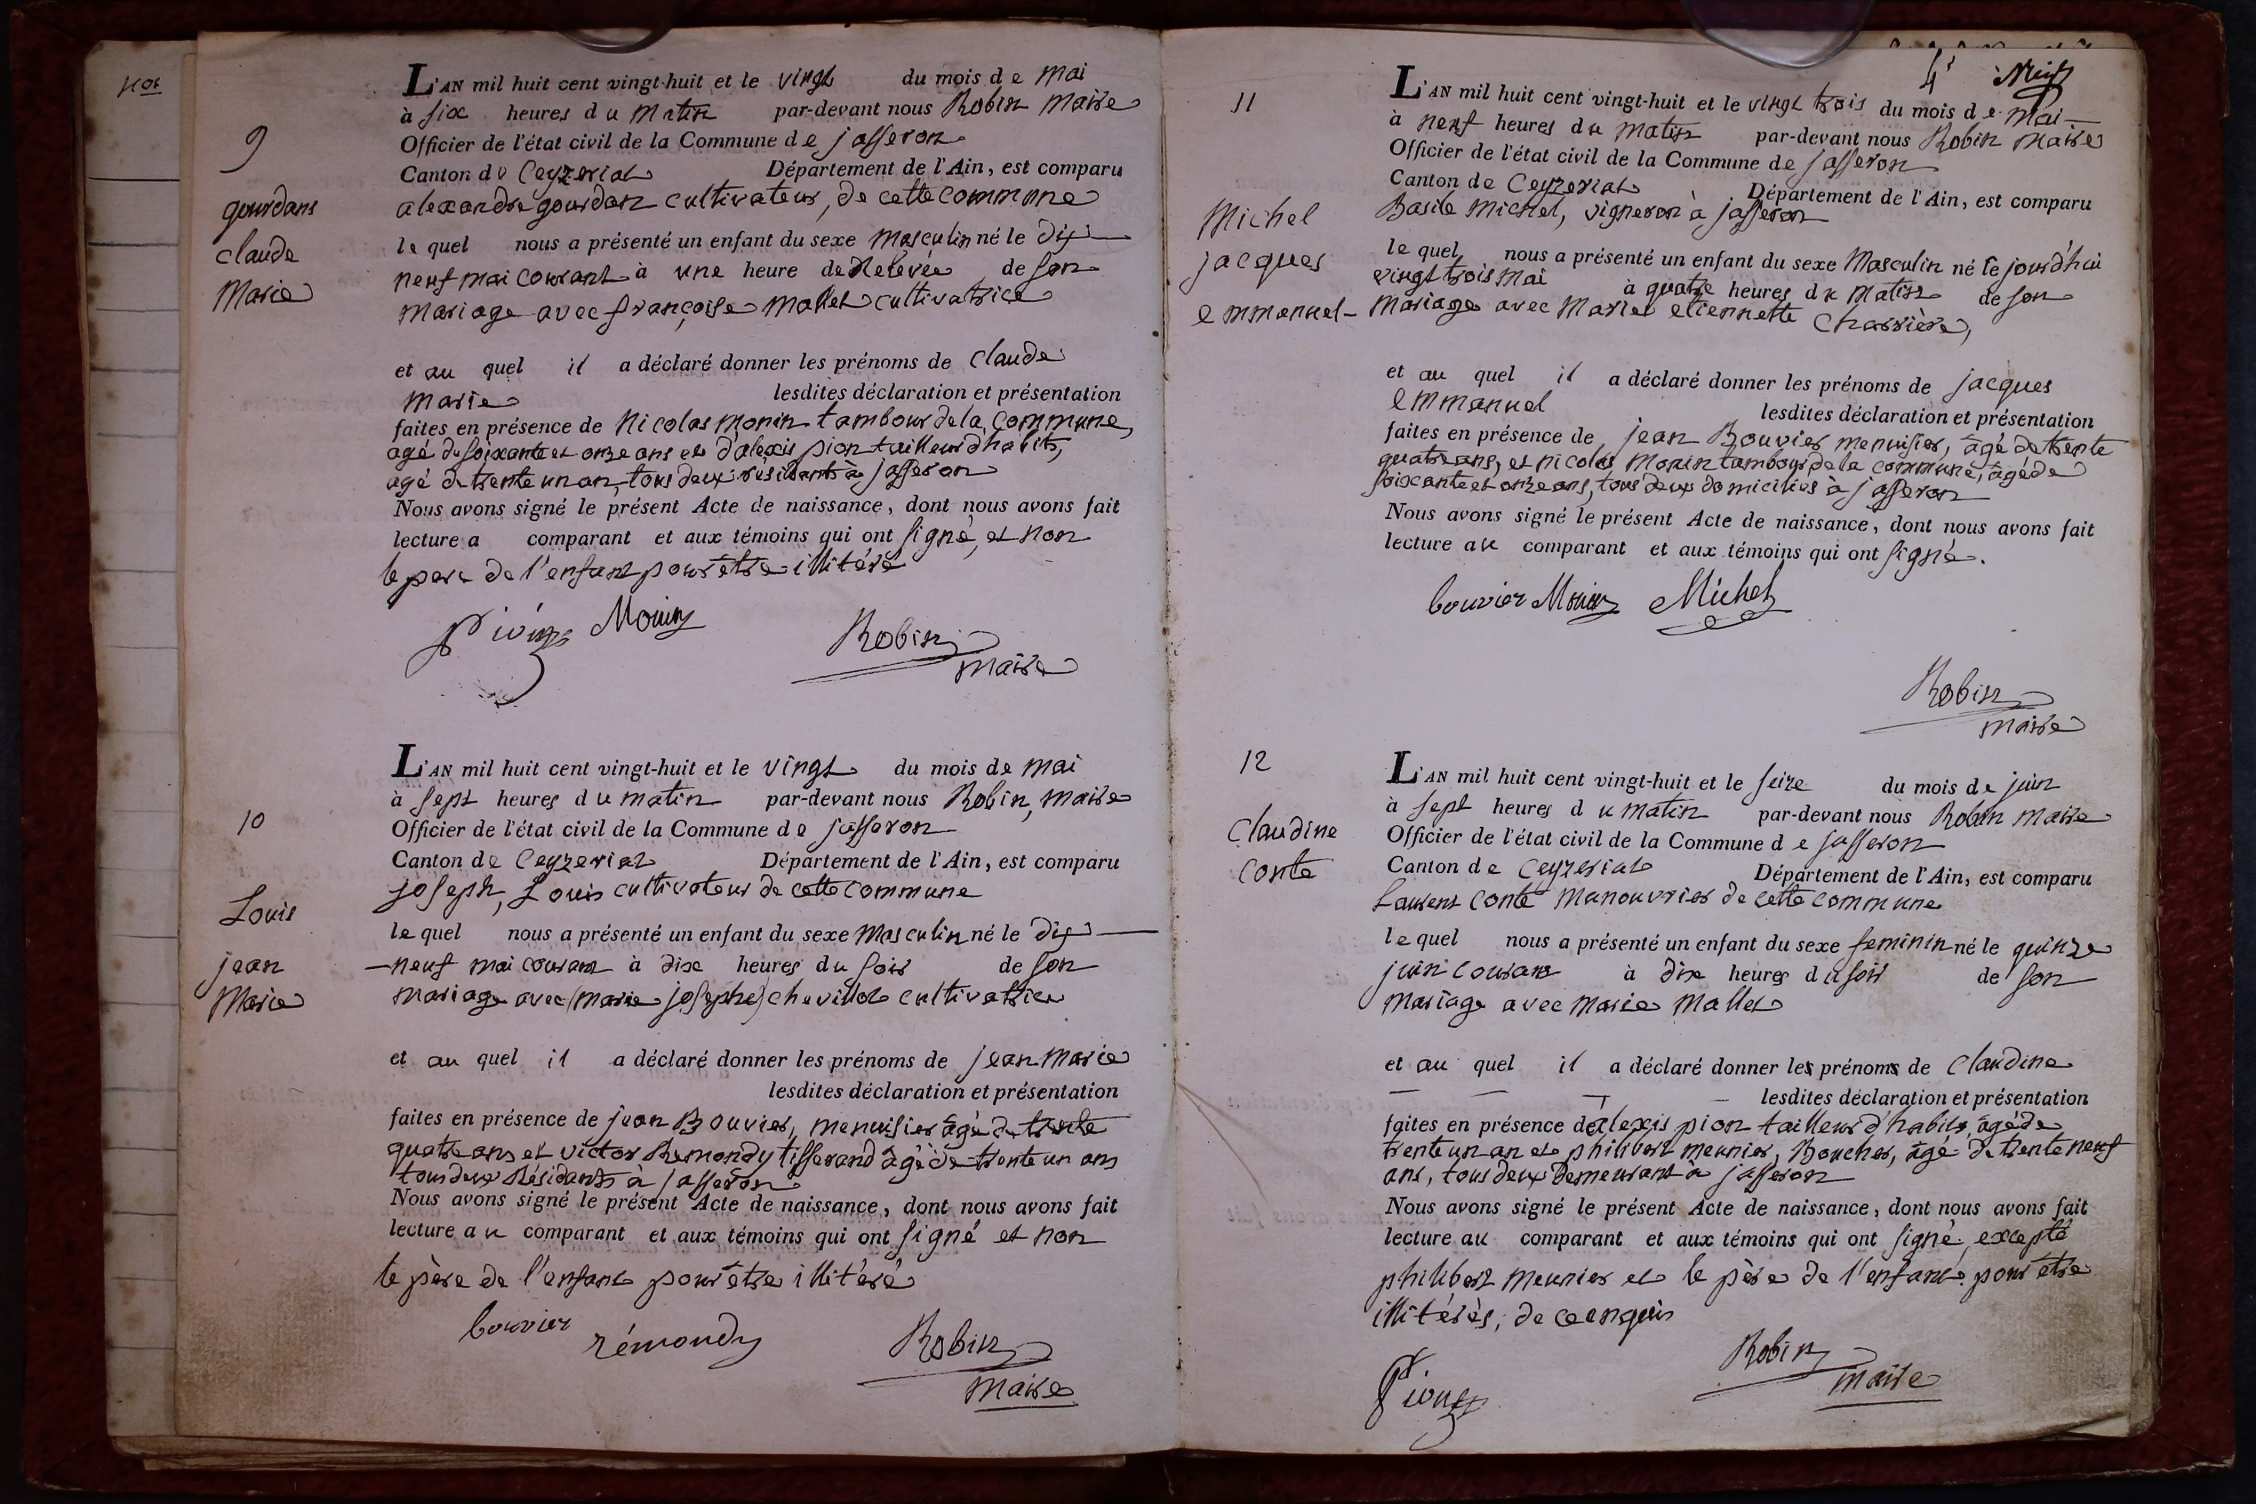 Nos
9
gourdans
claude
Marie
L'AN mil huit cent vingt-huit et le vingt du mois de mai
à six heures du matin par-devant nous Robin maire
Officier de l'état civil de la Commune de jasseron
Canton de Ceyzeriat Département de l'Ain, est comparu
alexandre gourdan cultivateur, de cette commune
le quel nous a présenté un enfant du sexe masculin né le dix
neuf mai courant à une heure de Relevée de son
mariage avec françoise mallet cultivatrice
et au quel il a déclaré donner les prénoms de claude
marie lesdites déclaration et présentation
faites en présence de Nicolas monin tambour de la commune,
agé de soixante et onze ans et d'alexis pion tailleur d'habits,
agé de trente un an, tous deux résidants à jasseron
Nous avons signé le présent Acte de naissance, dont nous avons fait
lecture a comparant et aux témoins qui ont signé, et non
le pere de l'enfant pour être illitéré
Pion Monin
Robin
maire
10
Louis
jean
Marie
L'AN mil huit cent vingt-huit et le vingt du mois de mai
à sept heures du matin par-devant nous Robin, maire
Officier de l'état civil de la Commune de jasseron
Canton de Ceyzeriat Département de l'Ain, est comparu
joseph, Louis cultivateur de cette commune
le quel nous a présenté un enfant du sexe masculin né le dix
neuf mai courant à dix heures du soir de son
mariage avec (marie josephe) chevillot cultivatrice
et au quel il a déclaré donner les prénoms de jean marie
lesdites déclaration et présentation
faites en présence de jean Bouvier, menuisier âgé de trente
quatre ans et victor Remondy tisserand âgé de trente un ans
tous deux Résidants à jasseron
Nous avons signé le présent Acte de naissance, dont nous avons fait
lecture au comparant et aux témoins qui ont signé et non
le père de l'enfant pour être illitéré
bouvier rémondy
Robin
maire
4e
11
Michel
jacques
emmanuel
L'AN mil huit cent vingt-huit et le vingt trois du mois de mai
à neuf heures du matin par-devant nous Robin maire
Officier de l'état civil de la Commune de jasseron
Canton de Ceyzeriat Département de l'Ain, est comparu
Basile michel, vigneron à jasseron
le quel nous a présenté un enfant du sexe masculin né le jourd'hui
vingt trois mai à quatre heures du matin de son
mariage avec marie etiennette charrière,
et au quel il a déclaré donner les prénoms de jacques
emmanuel lesdites déclaration et présentation
faites en présence de jean Bouvier menuisier, âgé de trente
quatre ans, et nicolas monin tambour de la commune, âgé de
soixante et onze ans, tous deux domiciliés à jasseron
Nous avons signé le présent Acte de naissance, dont nous avons fait
lecture au comparant et aux témoins qui ont signé.
bouvier Monin Michel
Robin
maire
12
Claudine
conte
L'AN mil huit cent vingt-huit et le seize du mois de juin
à sept heures du matin par-devant nous Robin maire
Officier de l'état civil de la Commune de jasseron
Canton de Ceyzeriat Département de l'Ain, est comparu
Laurent conte manouvrier de cette commune
le quel nous a présenté un enfant du sexe feminin né le quinze
juin courant à dix heures du soir de son
mariage avec marie mallet
et au quel il a déclaré donner les prénoms de claudine
lesdites déclaration et présentation
faites en présence d'alexis pion tailleur d'habits, âgé de
trente un an et philibert meunier, Boucher, âgé de trente neuf
ans, tous deux demeurant à jasseron
Nous avons signé le présent Acte de naissance, dont nous avons fait
lecture au comparant et aux témoins qui ont signé, excepté
philibert meunier et le père de l'enfant pour etre
illitérés, de ce enquis
Pion
Robin
maire